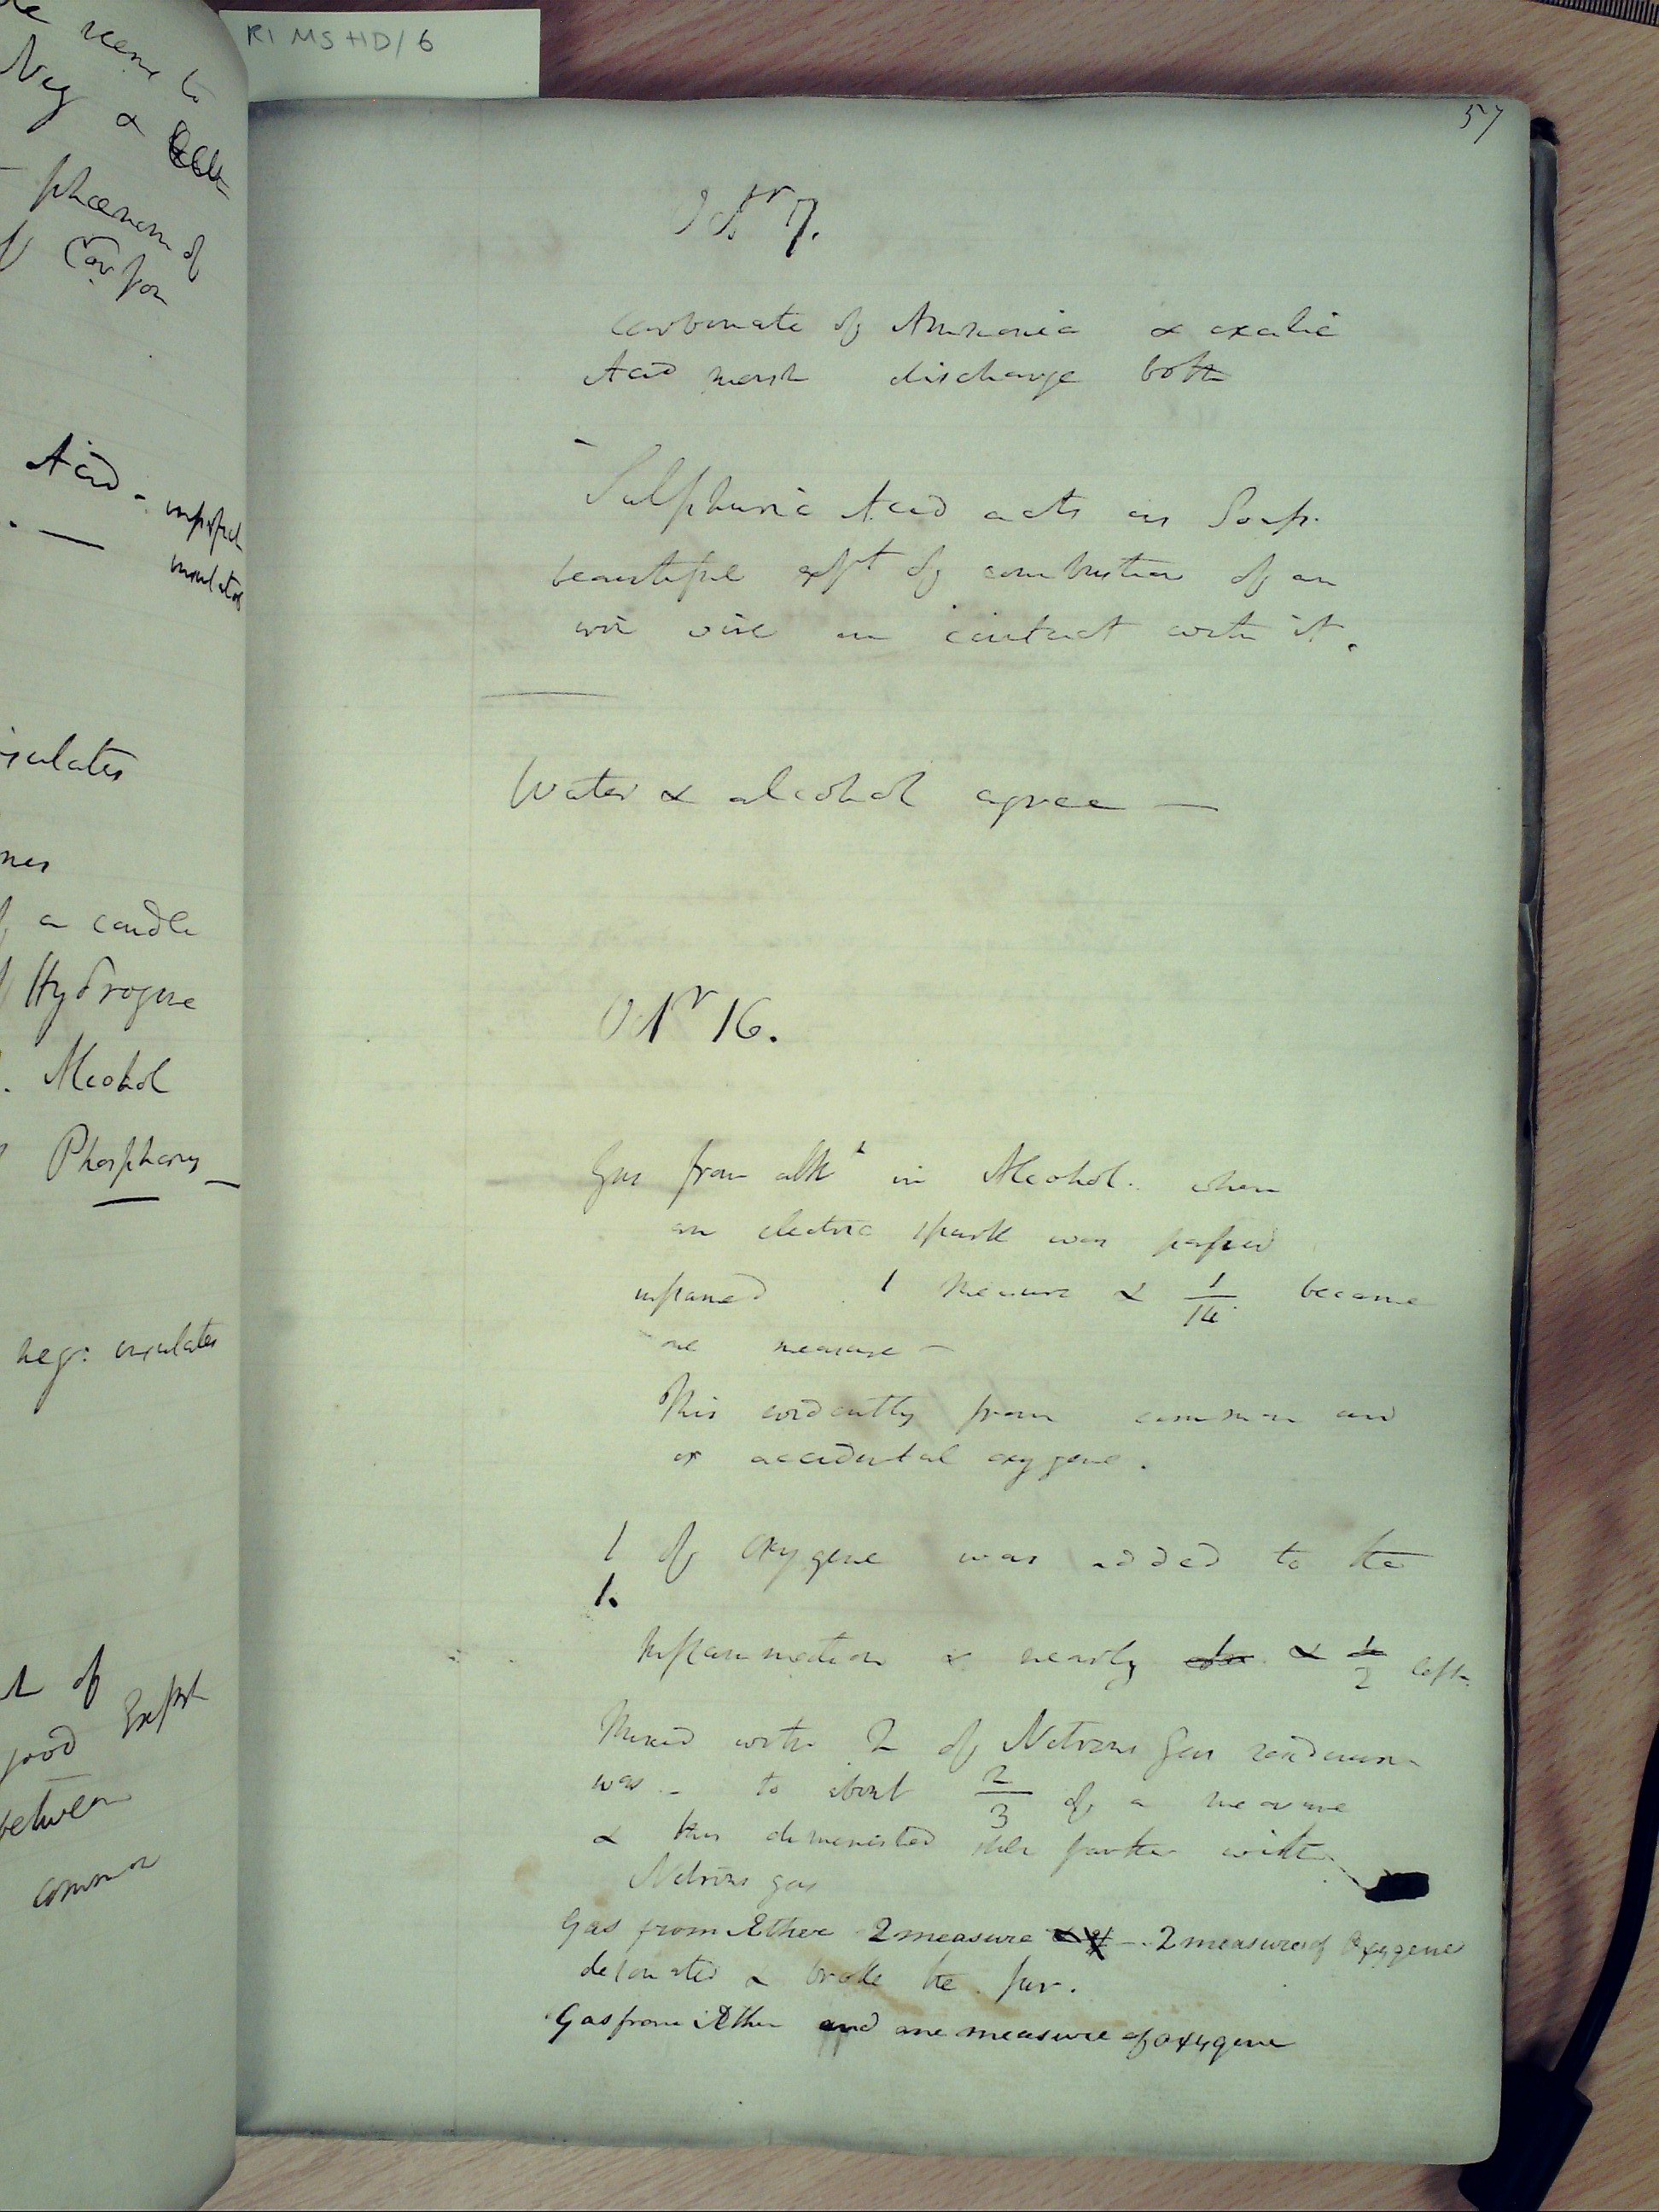 RI MS HD/6
57
Octr 7.
carbonate of Ammonia & oxalic
Acid moist discharge both
Sulphuric Acid acts as Soap.
beautiful expt of combustion of an
wire in contact with it.
Water & alcohol agree —
Octr 16.
Gas from in Alcohol. when
an electric spark was passed
inflamed 1 measure & 1/14 became
one measure —
This evidently from common air
or accidental oxygene.
1 of oxygene was added to the
1.
Inflammation & nearly & 1/2 left.
Mixed with 2 of Nitrous gas
was – to about 2/3 of a measure
& this diminished still farther with
Nitrous gas
Gas from Æther 2 measure – 2 measures of Oxygene
detonated & broke the jar.
Gas from Æther and one measure of oxygene
Neg &
phænom of
Acid - imperfect
insulator
insulates
a candle
Hydrogene
Alcohol
Phosphorus
neg: insulates
of
good
between
common